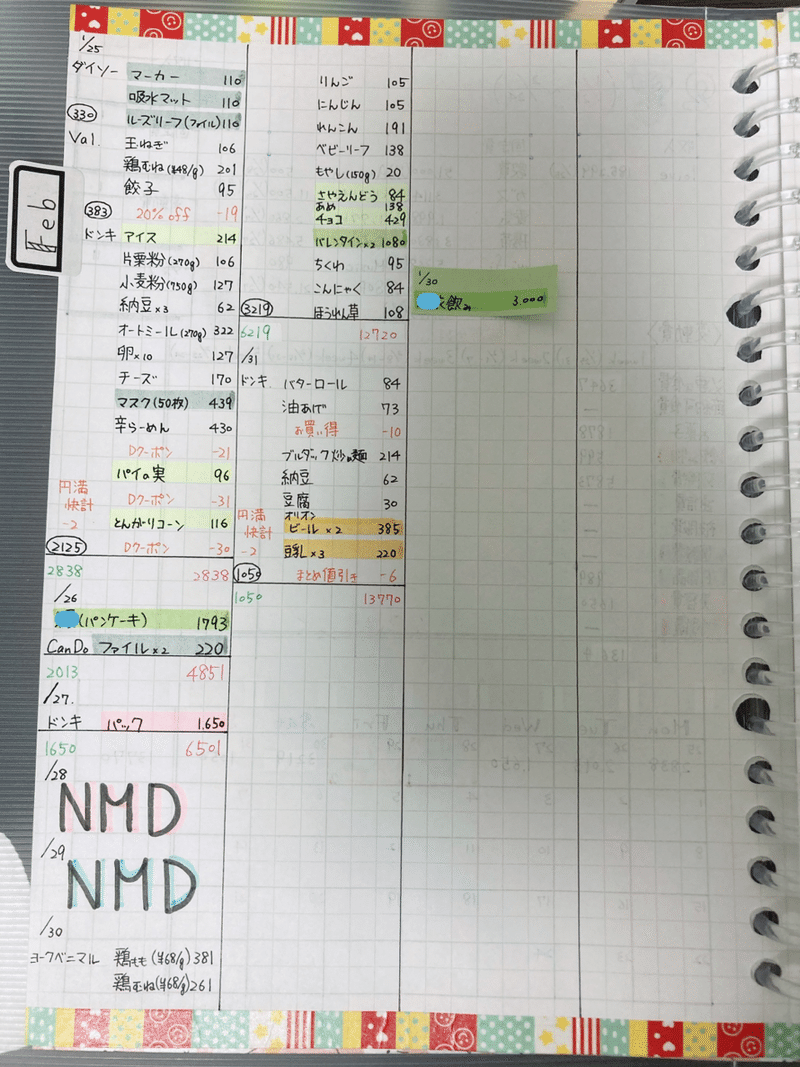 1/25
ダイソー マーカー 110
吸水マット 110
330 ルーズリーフ(ファイル) 110
Val. 玉ねぎ 106
鶏むね(¥48/g) 201
餃子 95
383 20% off -19
ドンキ アイス 214
片栗粉(270g) 106
小麦粉(750g) 127
納豆×3 62
オートミール(270g) 322
卵×10 127
チーズ 170
マスク(50枚) 439
辛らーめん 430
Dクーポン -21
パイの実 96
円満快計 -2
Dクーポン -31
とんがりコーン 116
2125 Dクーポン -30
2838 2838
/26
(パンケーキ) 1793
CanDo ファイル×2 220
2013 4851
/27.
ドンキ パック 1.650
1650 6501
/28
NMD
/29
NMD
/30
ヨークベニマル 鶏もも(¥68/g) 381
鶏むね(¥68/g) 261
りんご 105
にんじん 105
れんこん 191
ベビーリーフ 138
もやし(150g) 20
さやえんどう 84
あめ 138
チョコ 429
バレンタイン×2 1080
ちくわ 95
こんにゃく 84
3219 ほうれん草 108
6219 12720
/31
ドンキ. バターロール 84
油あげ 73
お買い得 -10
ブルダック炒め麺 214
納豆 62
豆腐 30
円満快計 -2
オリオン
ビール×2 385
豆乳×3 220
1050 まとめ値引き -6
1050 13770
1/30
飲み 3.000
Feb